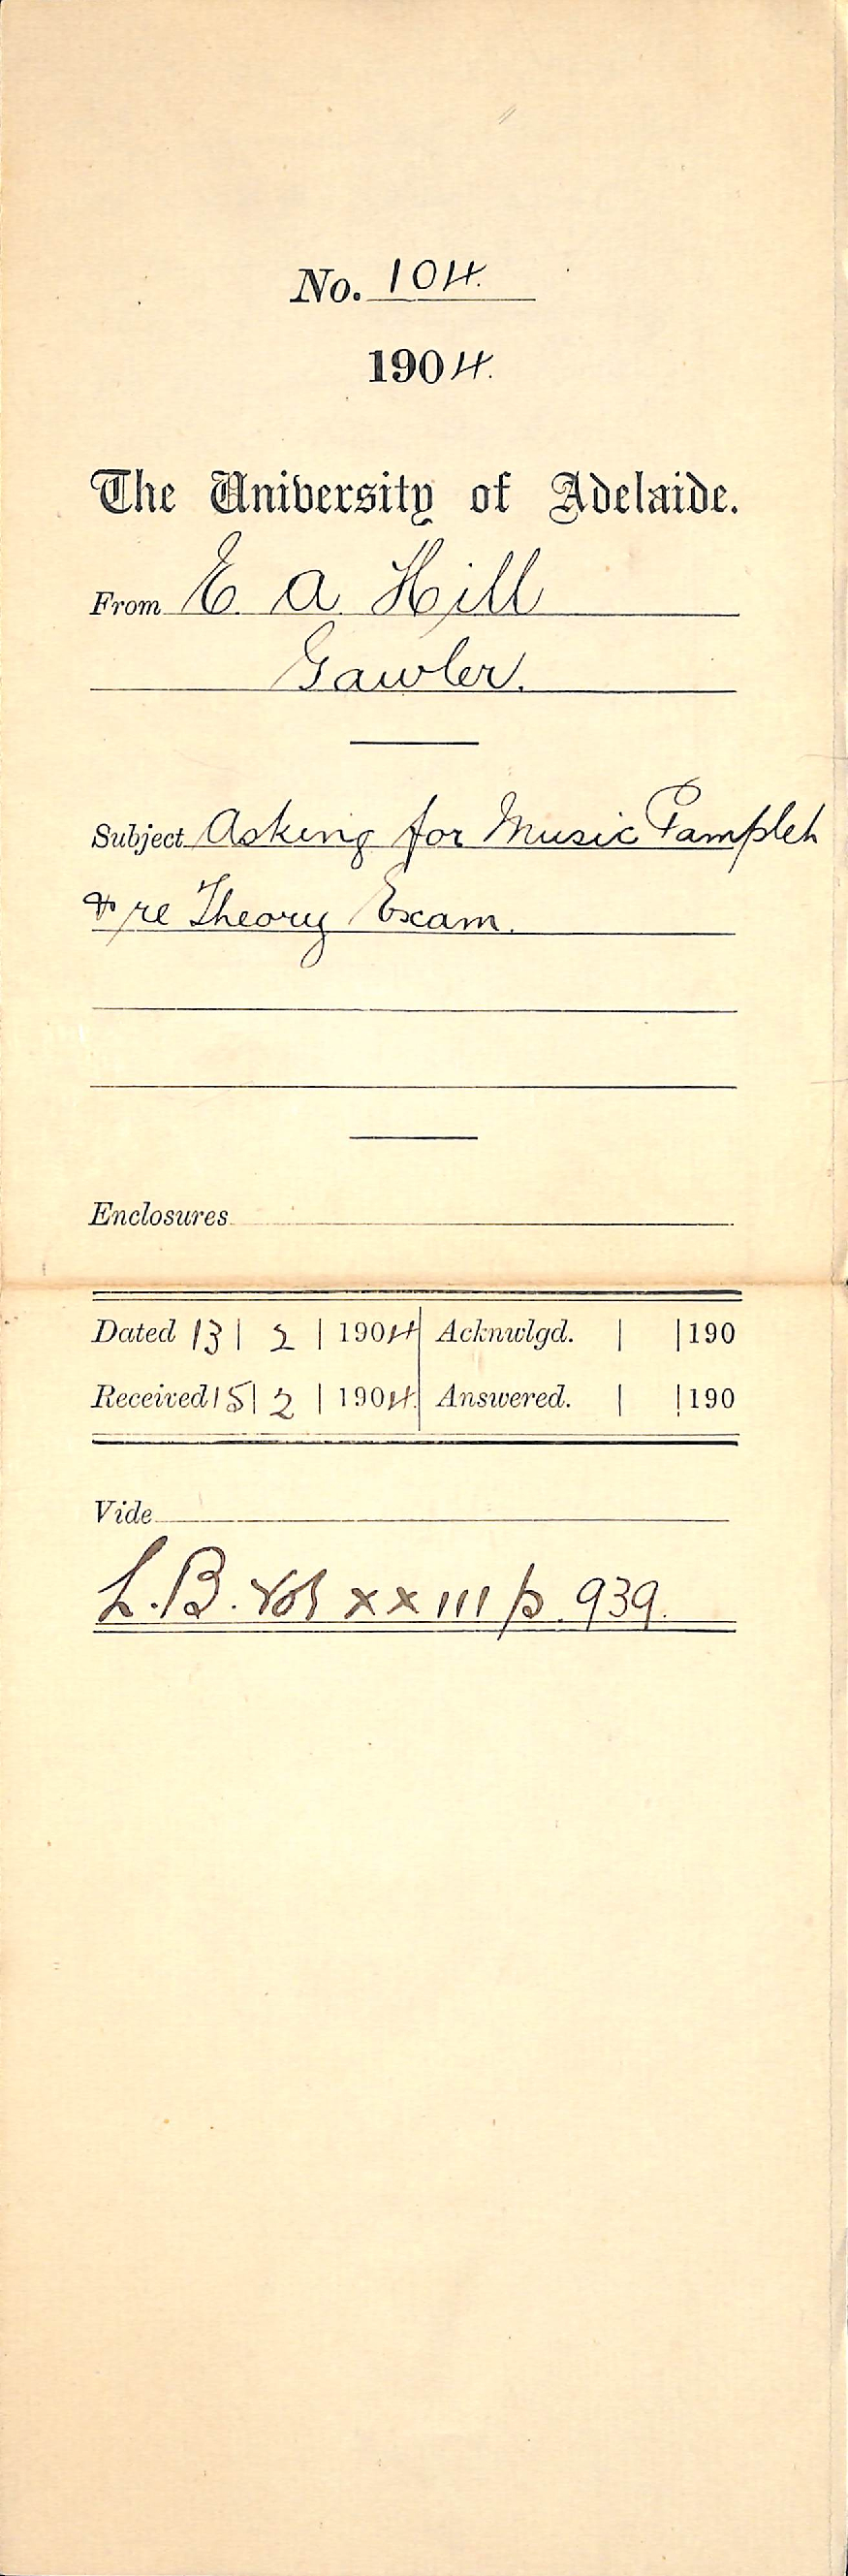 No. 104.
1904.
The University of Adelaide.
From E. A. Hill
Gawler.
Subject Asking for Music Pamplet
& re Theory Exam.
Enclosures
Dated 13 | 2 | 1904 Acknwlgd. | | 190
Received 15 | 2 | 1904. Answered. | | 190
Vide
L.B. Vol xxiii p. 939.